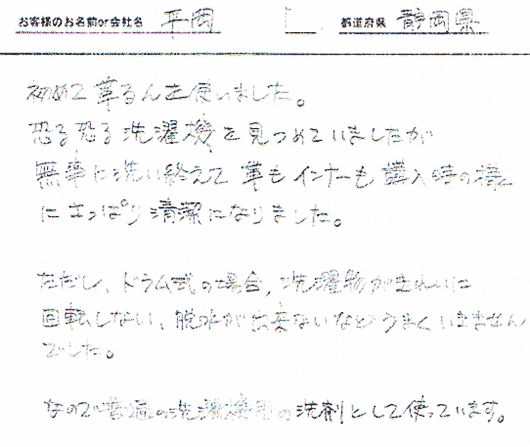 お客様のお名前or会社名 平岡 都道府県 静岡県
初めて革るんを使いました。
恐る恐る洗濯機を見つめていましたが
無事に洗い終えて革もインナーも購入時の様
にさっぱり清潔になりました。
ただし、ドラム式の場合、洗濯物がきれいに
回転しない、脱水が出来ないなどうまくいきません
でした。
なので普通の洗濯機用の洗剤として使っています。